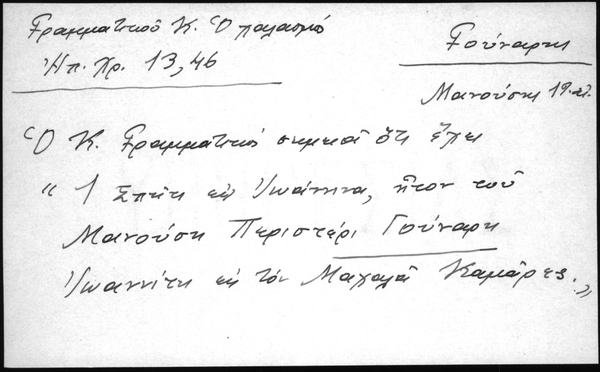 Γραμματικοῦ Κ. Ὁ παλασμός
Ἠπ. Χρ. 13, 46
Γούναρη
Μανούση 19
Ὁ Κ. Γραμματικός σημειοῖ ὅτι ἔχει
" 1 Σπίτι εἰς Ἰωάννινα, ἦτον τοῦ
Μανούση Περιστέρι Γούναρη
Ἰωαννίτη εἰς τόν Μαχαλᾶ Καμάρες."